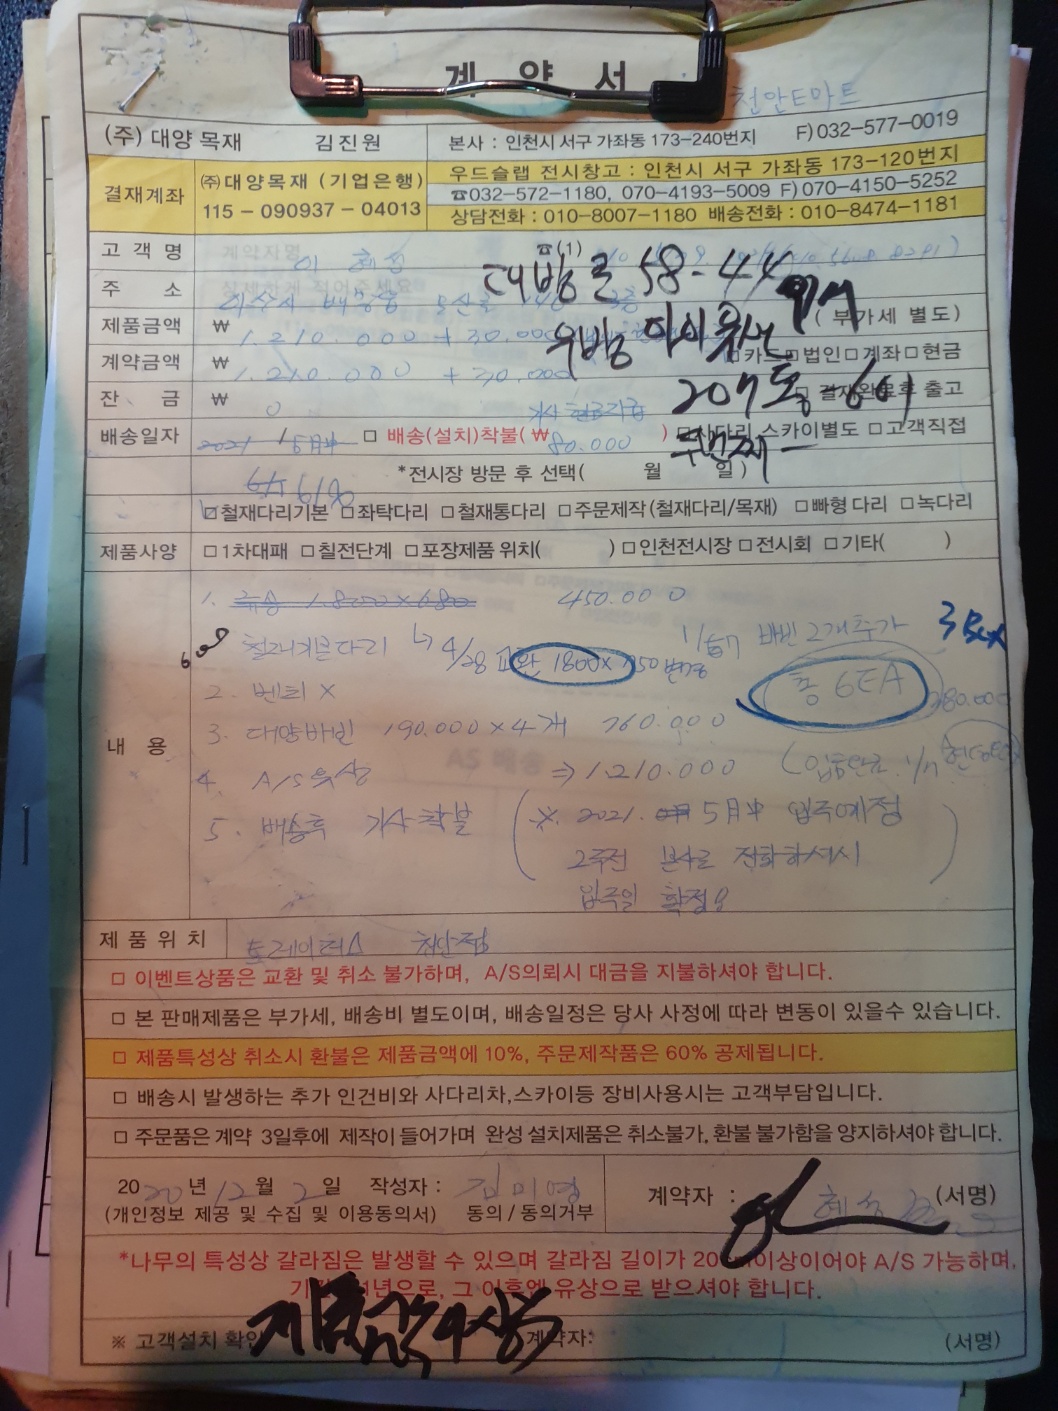 계 약 서
천안E마트
(주) 대양목재 김진원 본사 : 인천시 서구 가좌동 173-240번지 F)032-577-0019
결재계좌 ㈜대양목재 (기업은행) 115 - 090937 - 04013
우드슬랩 전시창고 : 인천시 서구 가좌동 173-120번지
☎032-572-1180, 070-4193-5009 F)070-4150-5252
상담전화 : 010-8007-1180 배송전화 : 010-8474-1181
고 객 명 ☎(1)
대방로 58-44
주 소
제품금액 ₩ 1.210.000 + 30.000 (부가세 별도)
계약금액 ₩ 1.210.000 + 30.000 □카드□법인□계좌□현금
207동 601
잔 금 ₩ 0 □ 결재완료후 출고
배송일자 2021 5月中 □ 배송(설치)착불(₩ 80.000 ) □사다리 스카이별도 □고객직접
두번째
*전시장 방문 후 선택( 월 일)
□철재다리기본 □좌탁다리 □철재통다리 □주문제작(철재다리/목재) □빠형다리 □녹다리
제품사양 □1차대패 □칠전단계 □포장제품 위치( ) □인천전시장 □전시회 □기타( )
내 용
1. 450.000
철재기본다리 ↳ 4/28 교환 1800×750
2개추가 3 Box
총 6EA 380.000
2. 벤치 X
3. 대양바빈 190.000 × 4개 760.000
4. A/S유상 ⇒ 1.210.000 (입금완료
5. 배송후 기사착불 (※. 2021. 5月中 입주예정
2주전 본사로 전화하셔서
입주일 확정요
제품위치 트레이더스 천안점
□ 이벤트상품은 교환 및 취소 불가하며, A/S의뢰시 대금을 지불하셔야 합니다.
□ 본 판매제품은 부가세, 배송비 별도이며, 배송일정은 당사 사정에 따라 변동이 있을수 있습니다.
□ 제품특성상 취소시 환불은 제품금액에 10%, 주문제작품은 60% 공제됩니다.
□ 배송시 발생하는 추가 인건비와 사다리차,스카이등 장비사용시는 고객부담입니다.
□ 주문품은계약 3일후에 제작이 들어가며 완성 설치제품은 취소불가, 환불 불가함을 양지하셔야 합니다.
2020년 12월 2일 작성자 : 김미영 계약자 : (서명)
(개인정보 제공 및 수집 및 이용동의서) 동의 / 동의거부
*나무의 특성상 갈라짐은 발생할 수 있으며 갈라짐 길이가 20 이상이어야 A/S 가능하며,
그 이후엔 유상으로 받으셔야 합니다.
※ 고객설치 확인 계약자: (서명)